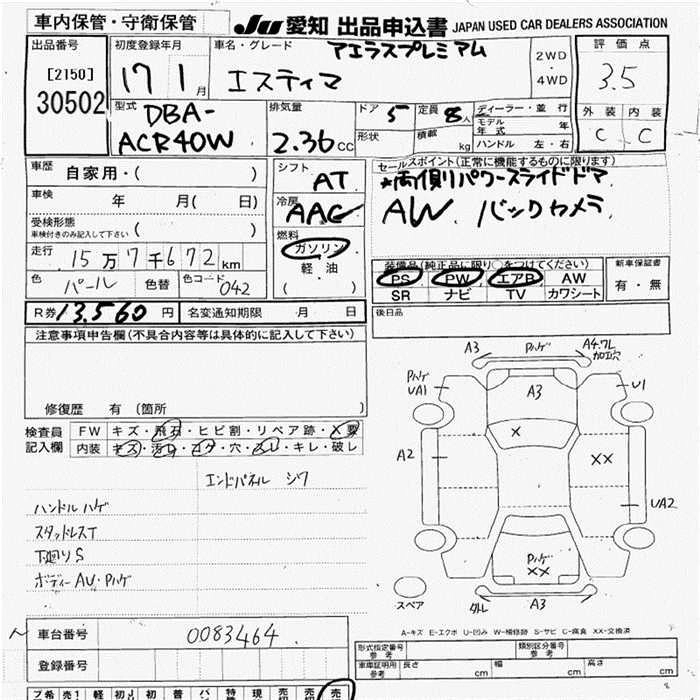 車内保管・守衛保管
JU 愛知 出品申込書 JAPAN USED CAR DEALERS ASSOCIATION
出品番号
[2150]
30502
初度登録年月
17 1月
車名・グレード
アエラスプレミアム
エスティマ
2WD
4WD
評価点
3.5
外装 内装
C C
型式
DBA-
ACR40W
排気量
2.36cc
ドア 5
形状
定員 8人
積載 kg
ディーラー・並行
モデル年式 年
ハンドル 左・右
車歴 自家用・( )
車検 年 月( 日)
受検形態
車検付きのみ記入して下さい ( )
走行 15万7千672km
色 パール 色替 色コード 042
シフト
AT
冷房
AAC
燃料
ガソリン
軽油
( )
セールスポイント(正常に機能するものに限ります)
★両側パワースライドドア
AW. バックカメラ
装備品(純正品に限り○をつけてください)
PS PW エアB AW
SR ナビ TV カワシート
新車保証書
有・無
R券 13,560円 名変通知期限 月 日
後日品
注意事項申告欄(不具合内容等は具体的に記入して下さい)
修復歴 有 (箇所 )
検査員
記入欄
FW キズ・飛石・ヒビ割・リペア跡・X要
内装 キズ・汚れ・コゲ・穴・スレ・キレ・破レ
エンドパネル シワ
ハンドルハゲ
スタッドレスT
下廻りS
ボディーAU・Pハゲ
A3 Pハゲ A4.7L
加工穴
Pハゲ
UA1
A3
U1
X
A2
XX
UA2
Pハゲ
XX
スペア
外し A3
A-キズ E-エクボ U-凹み W-補修跡 S-サビ C-腐食 XX-交換済
車台番号 0083464
登録番号
形式指定番号
参考
類別区分番号
参考
車庫証明用
参考
長さ cm 幅 cm 高さ cm